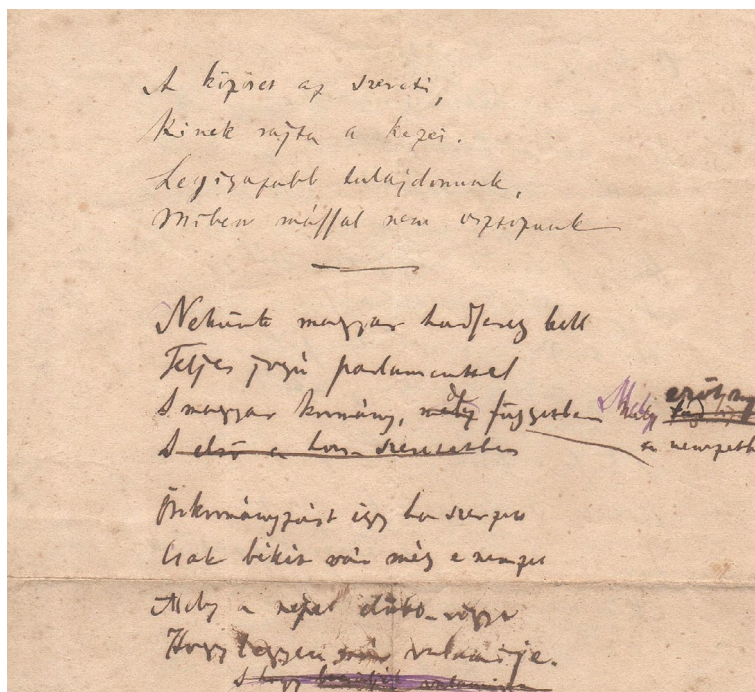 A közöset az szereti,
Kinek rajta a kezei.
Legigazabb tulajdonunk,
Miben mással nem osztozunk
Nekünk magyar hadsereg kell
Teljes jogú parlamenttel
S magyar kormány, mely független Mely
S első a hon szeretetben a nemzetb
Önkormányzást így ha szerzett
Csak békés vár még e nemzet
Mely a népet
Hogy legyen már valamije.
S hogy valamije